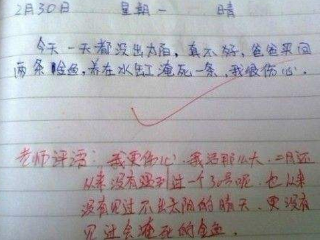 2月30日 星期一 晴
今天一天都没出太阳,真不好,爸爸买回
两条金鱼,养在水缸淹死一条,我很伤心。
老师评语:我更伤心,我活那么大,二月还
从来没有碰到过一个30号呢,也从来
没有见过不出太阳的晴天,更没有
见过会淹死的金鱼